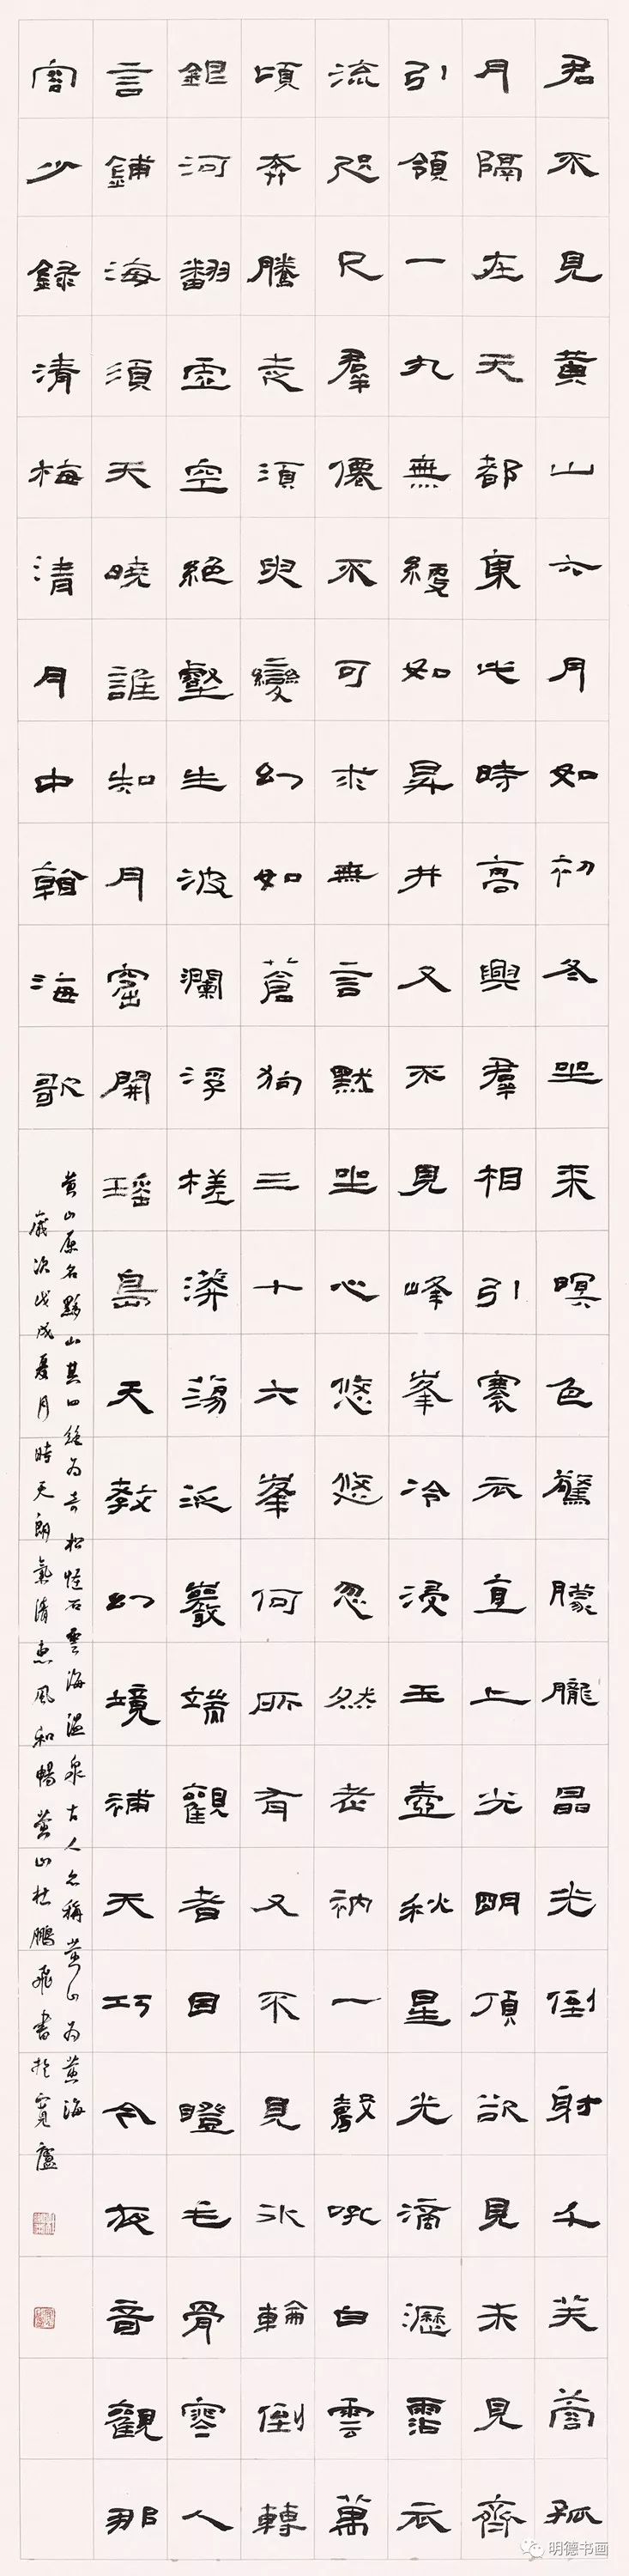 君不見黃山六月如初冬坐來暝色驚朦朧晶光倒射千芙蓉孤
月隔在天都東此時高興羣相引褰衣直上光明頂欲見未見齊
引領一丸無綆如昇井又不見峰峯冷浸玉壺秋星光滴瀝霑衣
流咫尺羣僊不可求無言默坐心悠悠忽然老衲一聲吼白雲萬
頃奔騰走須臾變幻如蒼狗三十六峯何所有又不見冰輪倒轉
銀河翻虛空絕壑生波瀾浮槎漭蕩沠巖端觀者目瞪毛骨寒人
言鋪海須天曉誰知月窟開瑤島天教幻境補天巧今夜竒觀那
容少錄清梅清月中翰海歌
黃山原名黟山其四絕為奇松怪石雲海溫泉古人亦稱黃山為黃海
歲次戊戌夏月時天朗氣清惠風和暢黃山杜鵬飛書於寬廬
明德书画